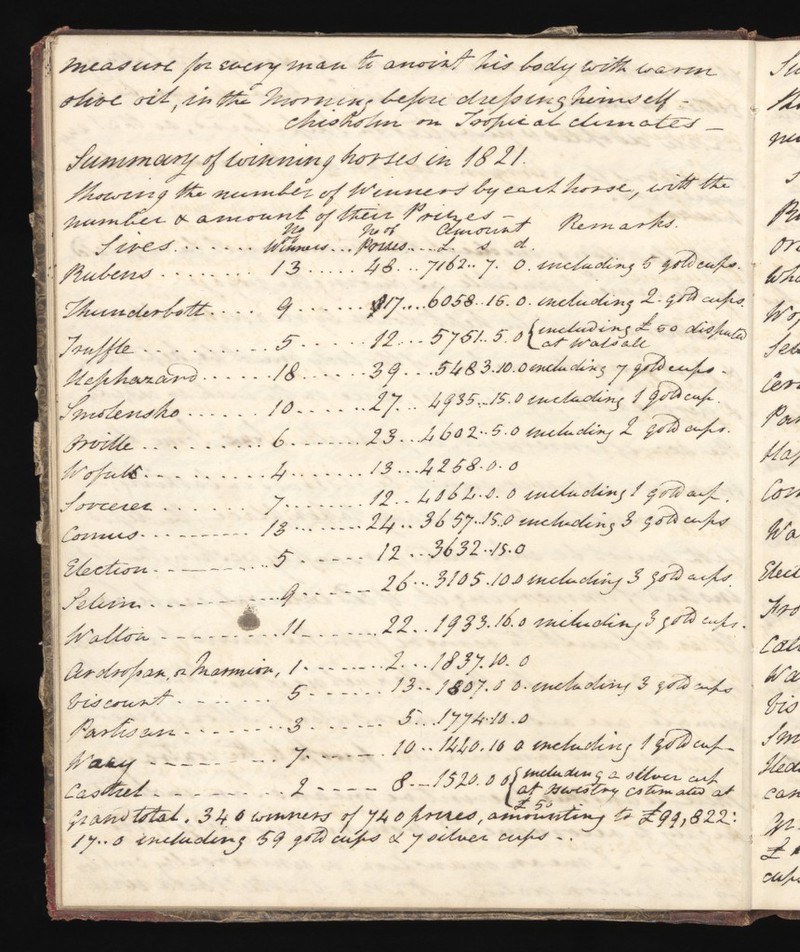 measure for every man to anoint his body with warm
olive oil, in the Morning before dressing himself -
Chisholm on Tropical climates -
Summary of winning horses in 1821.
Showing the number of Winners by each horse, with the
number & amount of their Prizes -
Sires ....... No Winners ... No of Prizes ... Amount £ s d. Remarks.
Rubens ........ 13 ..... 48 ... 7162 .. 7. 0. including 5 gold cups.
Thunderbolt .... 9 ...... 17 ... 6058 .. 15. 0. including 2. gold cups.
Truffle ......... 5 ...... 12 ... 5751 .. 5. 0 { including £50 disputed
at Walsall
Haphazard ..... 18 ..... 39 ... 5483. 10. 0 including 7 gold cups -
Smolensko ...... 10 ...... 27 ... 4935 .. 15. 0 including 1 gold cup.
Orville ......... 6 ....... 23 ... 4602 .. 5. 0 including 2 gold cups.
......... 4 ...... 13 ... 4258. 0. 0
Sorcerer ....... 7 ....... 12 .. 4062. 0. 0 including 1 gold cup.
Comus ........ 13 ....... 24 .. 3657. 15. 0 including 3 gold cups
Election ........ 5 ....... 12 .. 3632. 15. 0
Selim ......... 9 ....... 26 ... 3105. 10. 0 including 3 gold cups.
Walton ------- 11 ------- 22 .. 1933. 16. 0 including 3 gold cups.
Ardrossan, or Marmion, 1 ------- 2 ... 1837. 10. 0
Viscount ------- 5 ------ 13 .. 1807. 0 0. including 3 gold cups
Partisan ------- 3 ------ 5 ... 1774. 10. 0
------- 7 ------ 10 .. 1440. 10 0 including 1 gold cup -
Castrel ------- 2 ------ 8 --- 1520. 0 0 { including a silver cup
at Oswestry estimated at
£50
Grand total. 340 winners of 740 prizes, amounting to £99,822:
17 .. 0 including 59 gold cups & 7 silver cups -.